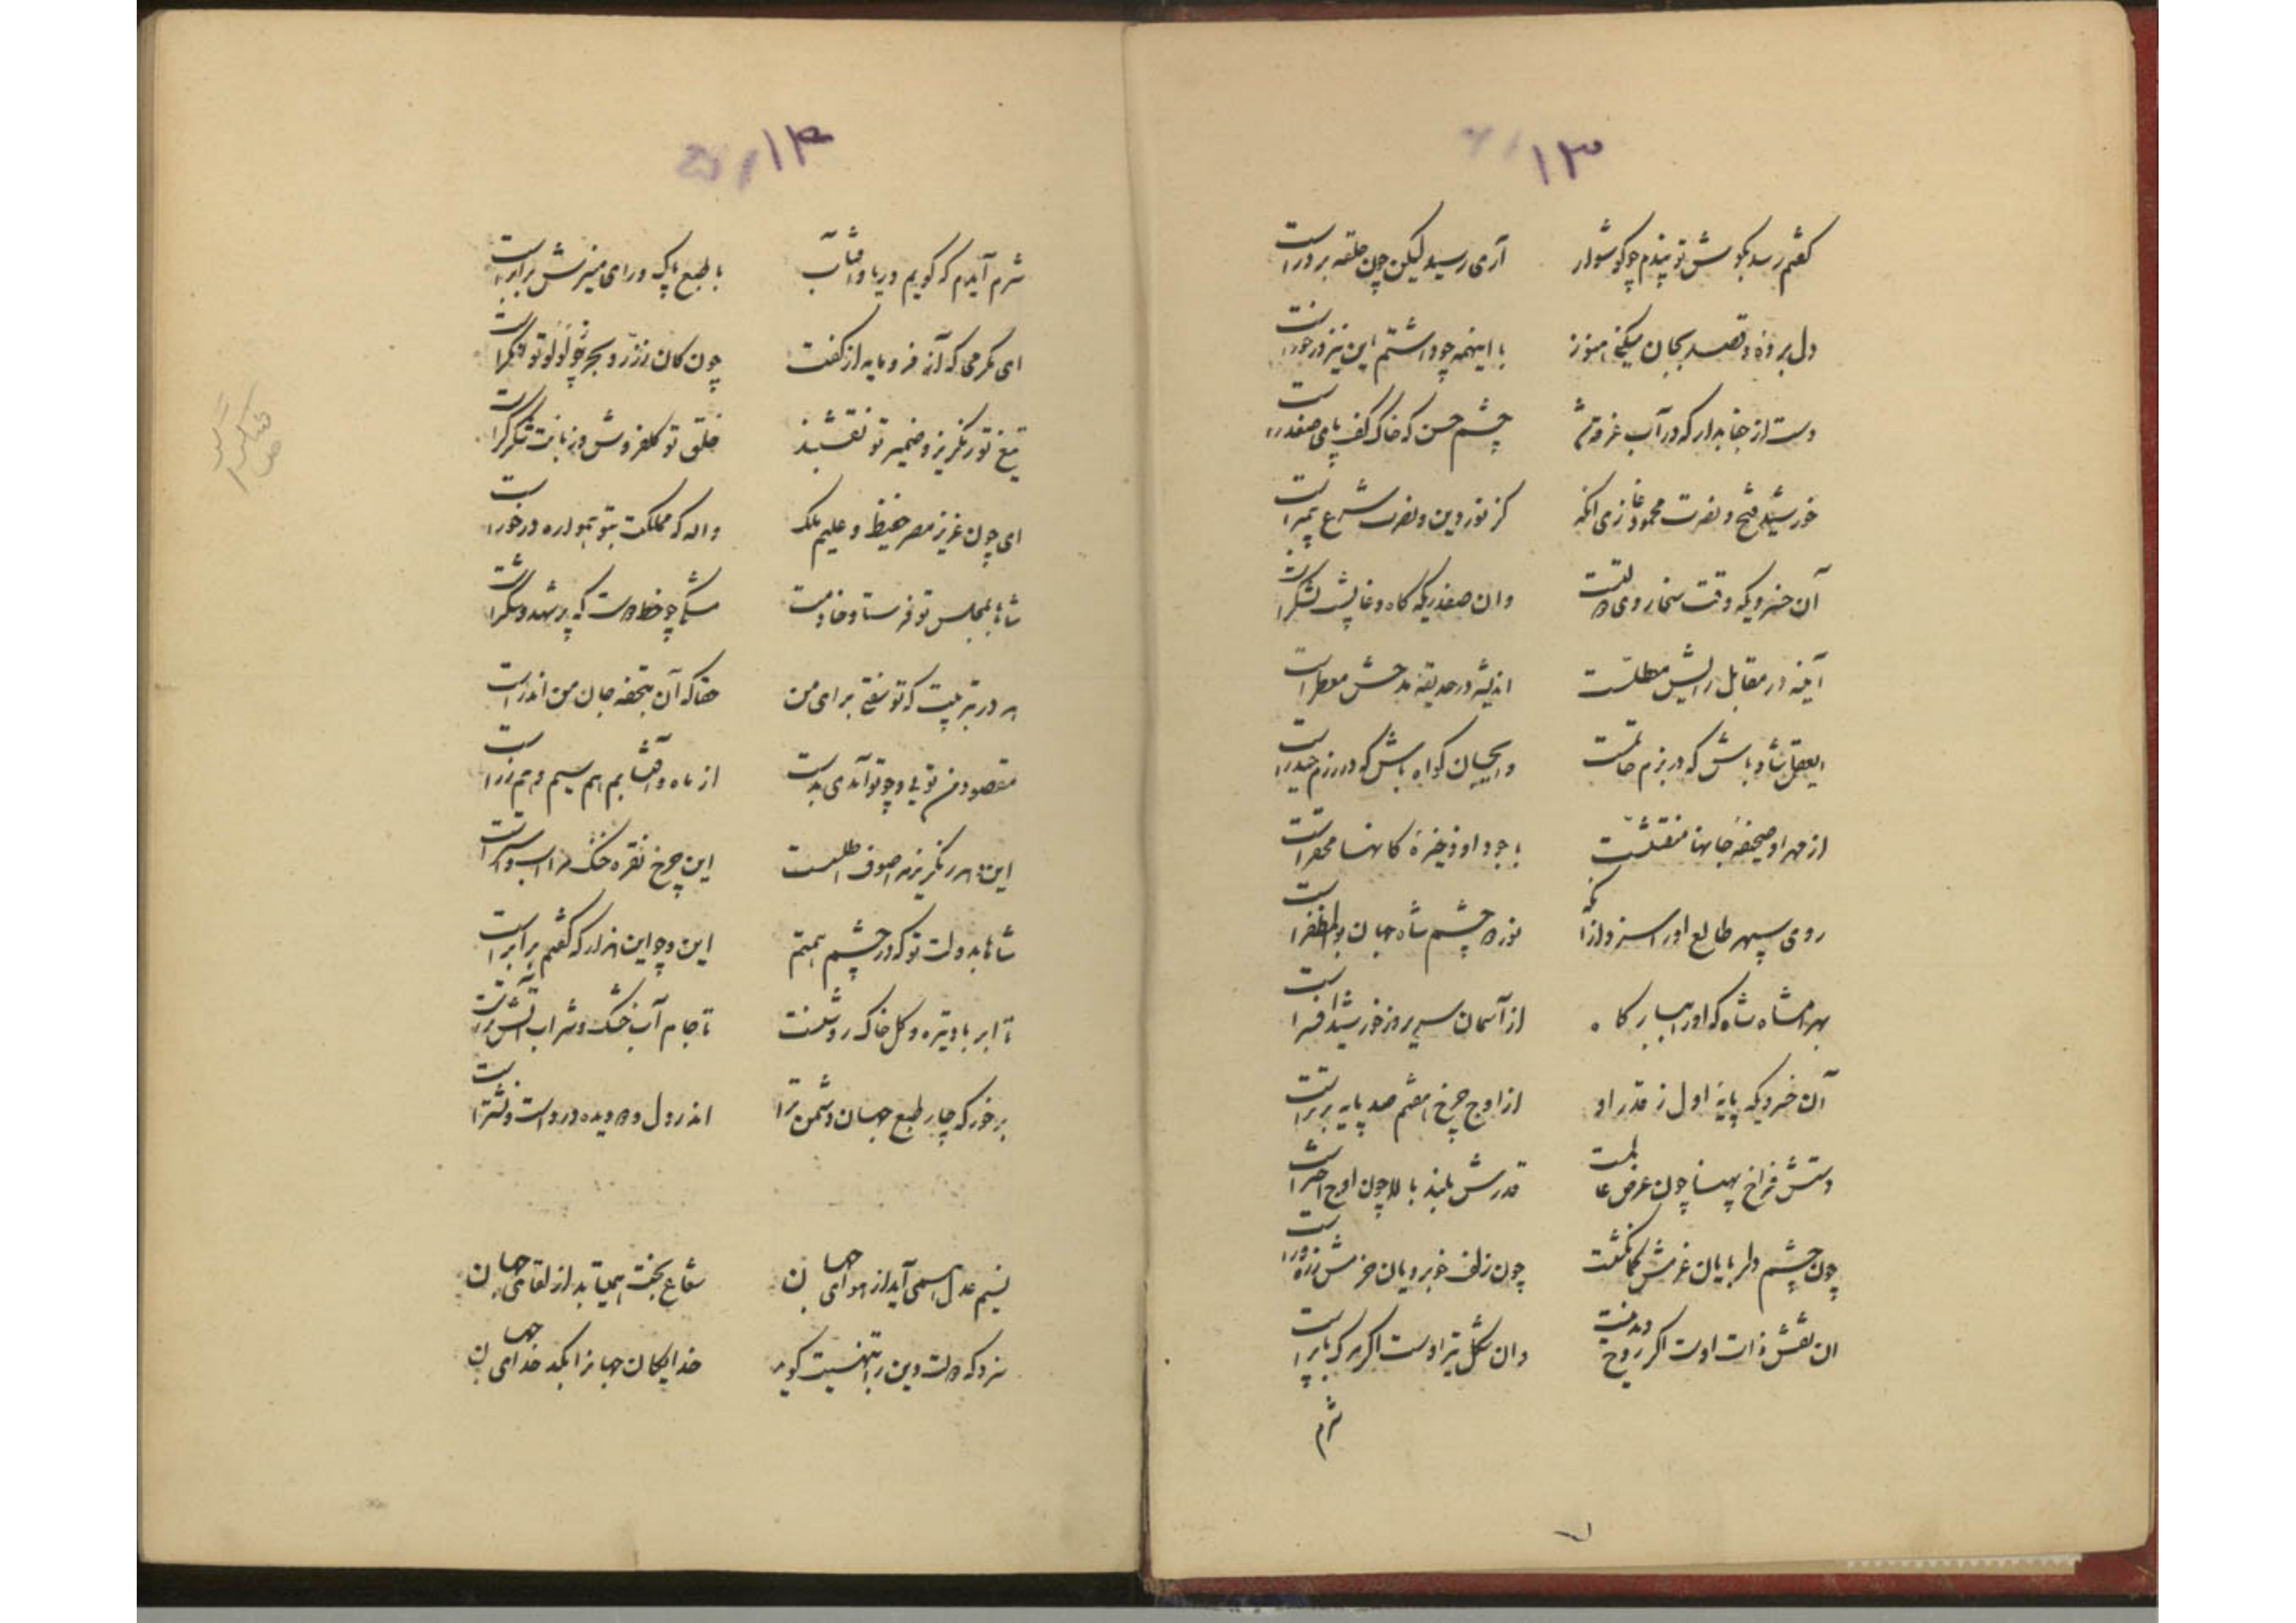 ۱۳
گفتم رسد بگوش تو پندم چو گوشوار آری رسید لیکن چون حلقه بر در است
دل برده و قصد بجان میکنی هنوز با اینهمه چو دا شتم این نیز در خور است
دست از جفا بدار که در آب غرقه شد چشم حسن که خاک کف پای صفدر است
خورشید فتح و نصرت محمود غازی آنکه کز نور دین و نصرت شرع پیمبر است
آن خسرویکه وقت سخا روی دولتست وان صفدریکه گاه وغا پشت لشکر است
آینه در مقابل رایش مطلست اندیشه در حدیقه مدحش معطر است
ایعقل شاد باش که در بزم حاتمست وایجان گواه باش که در رزم حیدر است
از مهر او صحیفه جانها منقشست با جود او ذخیره کانها محقر است
روی سپهر طالع او را سزد از آنکه نور دو چشم شاه جهان بوالمظفر است
بهرامشاه شاه که او را ببارگاه از آسمان سریر و ز خورشید افسر است
آن خسرویکه پایه اول ز قدر او از اوج چرخ هفتم صد پایه برتر است
دستش فراخ پهنا چون عرض عالمست قدرش بلند بالا چون اوج اختر است
چون چشم دلربایان عزمش کمانکشست چون زلف خوبرویان حزمش زره ور است
ان نقش ذات اوست اگر روح مدنیست وان شکل تیر اوست اگر مرگ با پر است
شرم
۱۴
شرم آیدم که گویم دریا و آفتاب با طبع پاک و رای منیرش برابر است
ای مکرمی که آز فرومایه از کفت چون کان ز زر و بحر ز لولو توانگر است
تیغ تو رنگریز و ضمیر تو نقشبند خلق تو گلفروش و زبانت شکر گر است
ای چون عزیز مصر حفیظ و علیم ملک والله که مملکت بتو همواره در خور است
شاها بمجلس تو فرستاد خادمت مشکی چو خط دوست که پر شهد و شکر است
هر در تربیت که تو سفتی برای من حقا که آن بتحفه جان من اندر است
مقصود من تویی و چو تو آمدی بدست از ماه و آفتابم هم سیم و هم زر است
این دهر رنگریز مرا صوف و اطلست این چرخ نقره خنگ مرا اسب و استر است
شاها بدولت تو که در چشم همتم این و چو این هزار که گفتم برابر است
تا ابر باد تیره و گل خاک روشنست تا جام آب خشک و شراب آتش تر است
برخور که چار طبع جهان دشمن ترا اندر دل و دو دیده و در دست و نشتر است
نسیم عدل همی آید از هوای جهان شعاع بخت همیتابد از لقای جهان
سزد که دولت و دین را بتهنیت گویند خدایگان جهانرا نگه خدای جهان